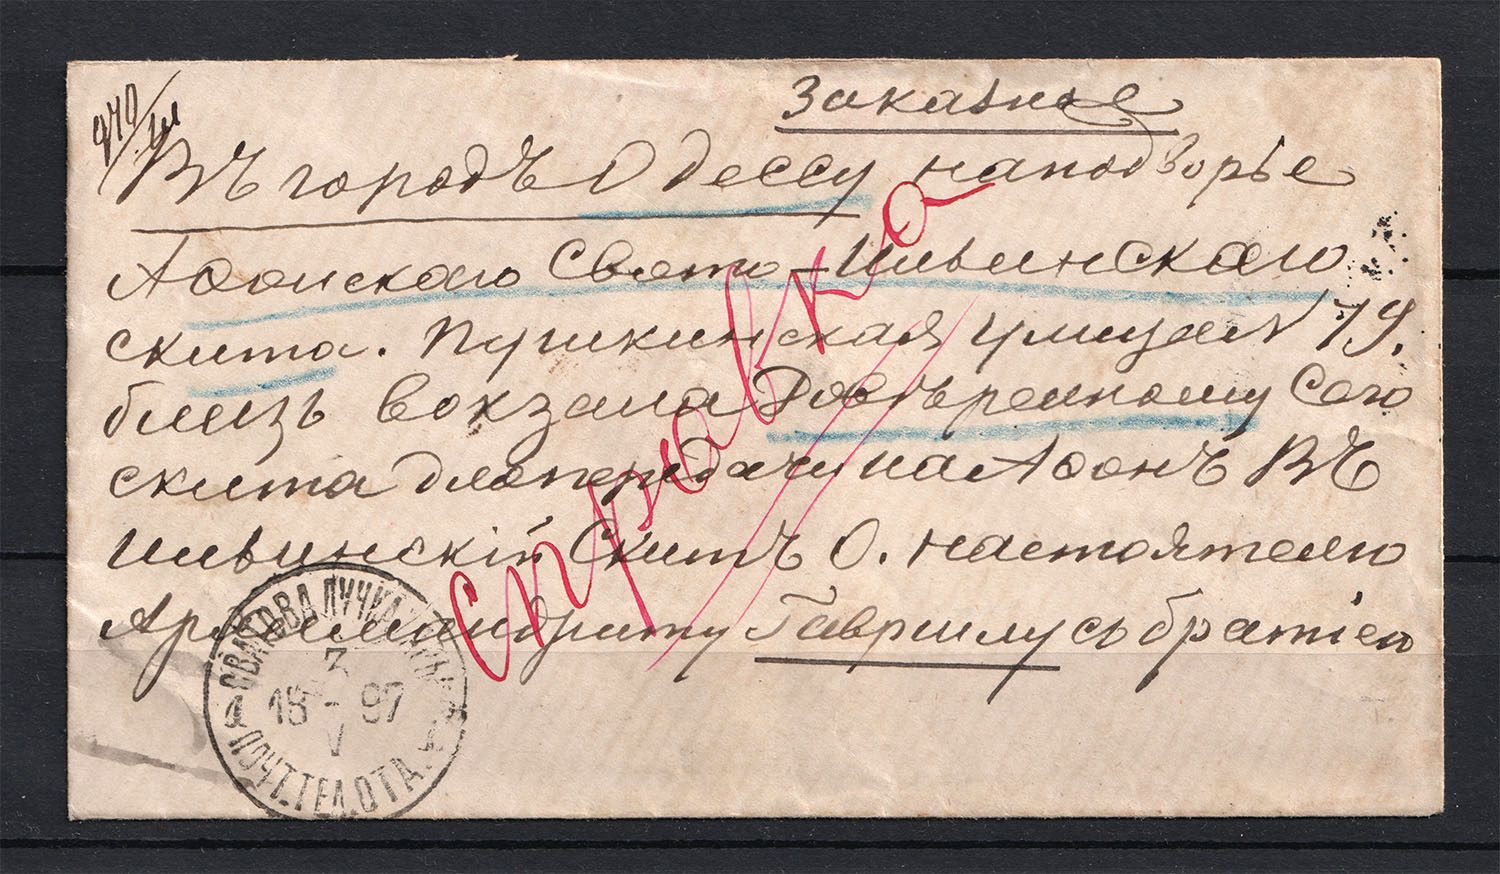 Заказное
Въ городъ Одессу на подворье
Афонскаго Свято-Ильинскаго
скита. Пушкинская улица N 79.
близь вокзала Довѣренному Сего
скита для передачи на Афонъ Въ
Ильинскій Скитъ О. настоятелю
Архимандриту Гавриилу съ братіею
Справка
СВАТОВА ЛУЧКА
3
18-97
V
ПОЧТ.ТЕЛ.ОТД.